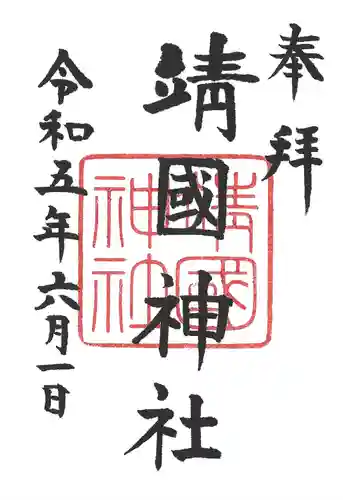 奉拝
靖國神社
靖國神社
令和五年六月一日